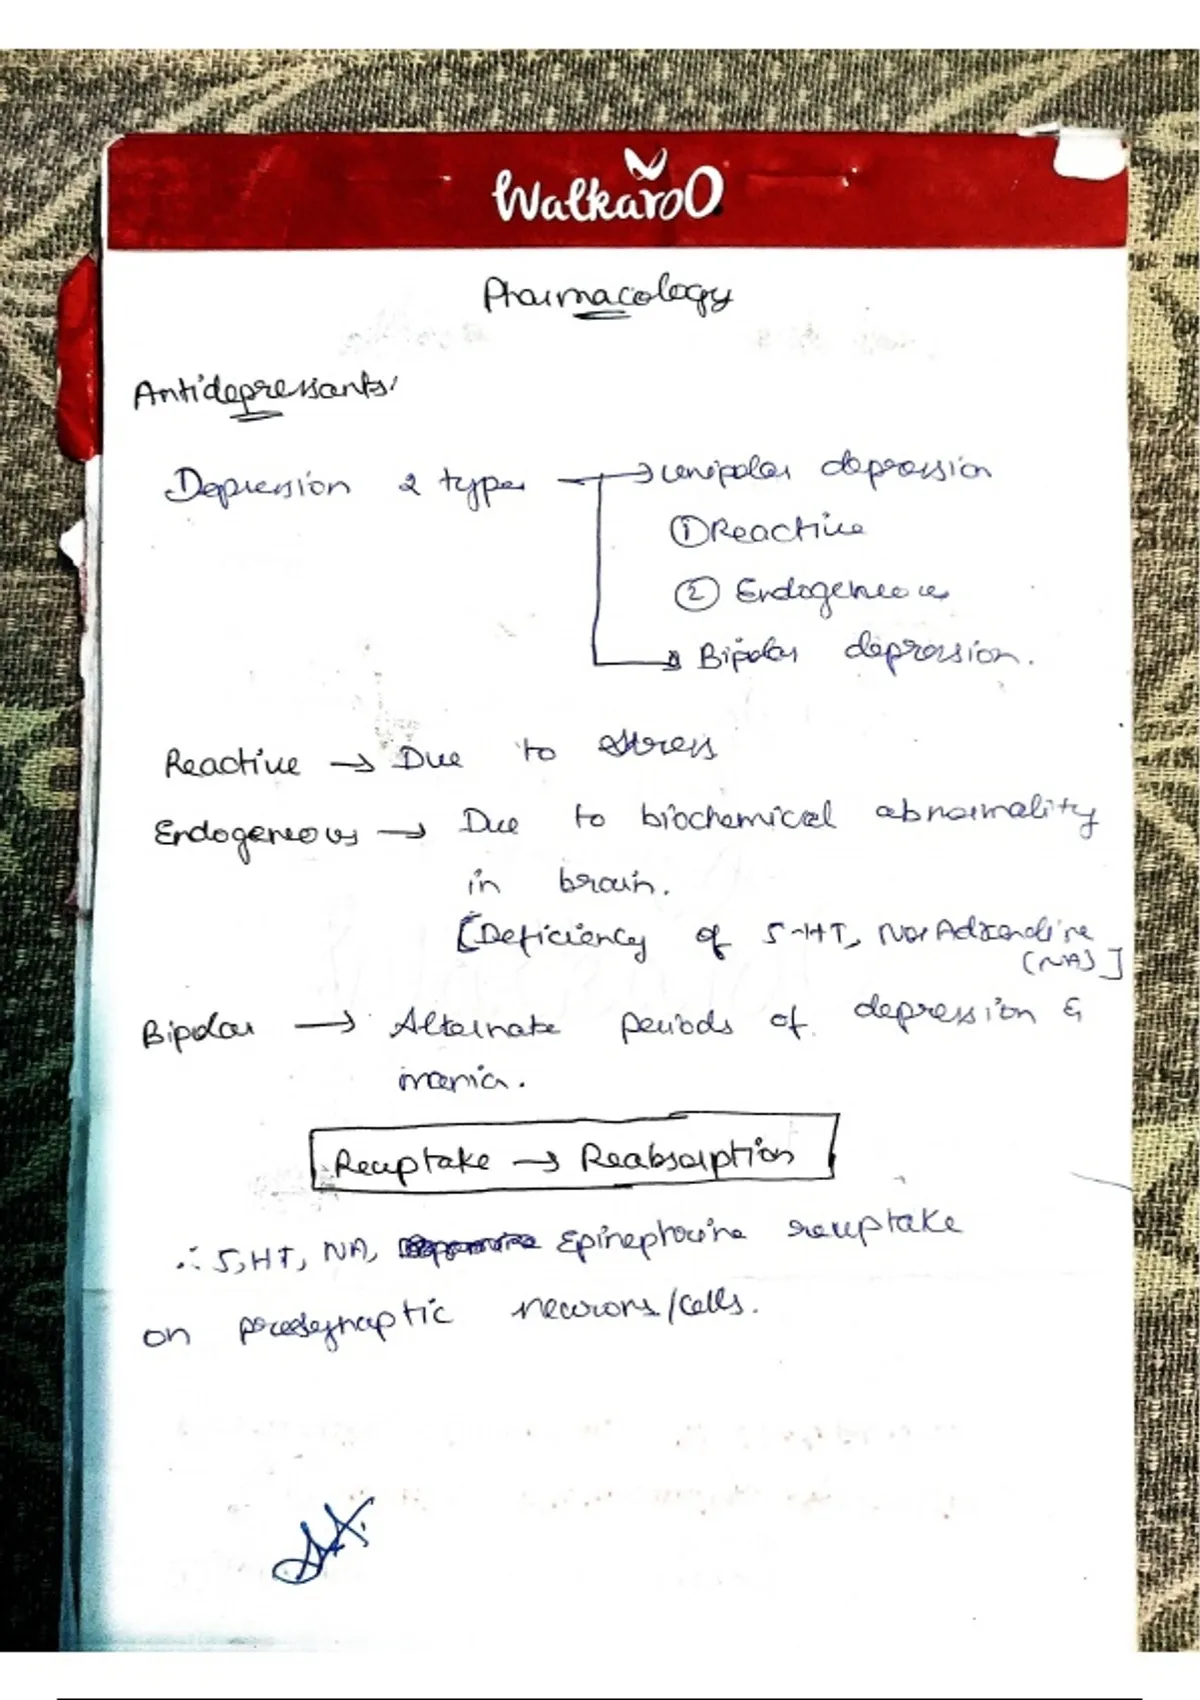 WalkaroO
Pharmacology
Antidepressants:
Depression 2 types → unipolar depression
① Reactive
② Endogeneous
→ Bipolar depression.
Reactive → Due to stress
Endogeneous → Due to biochemical abnormality
in brain.
[Deficiency of 5-HT, NorAdrenaline
(NA)]
Bipolar → Alternate periods of depression &
mania.
Reuptake → Reabsorption
∴ 5,HT, NA, Epinephrine reuptake
on presynaptic neurons/cells.